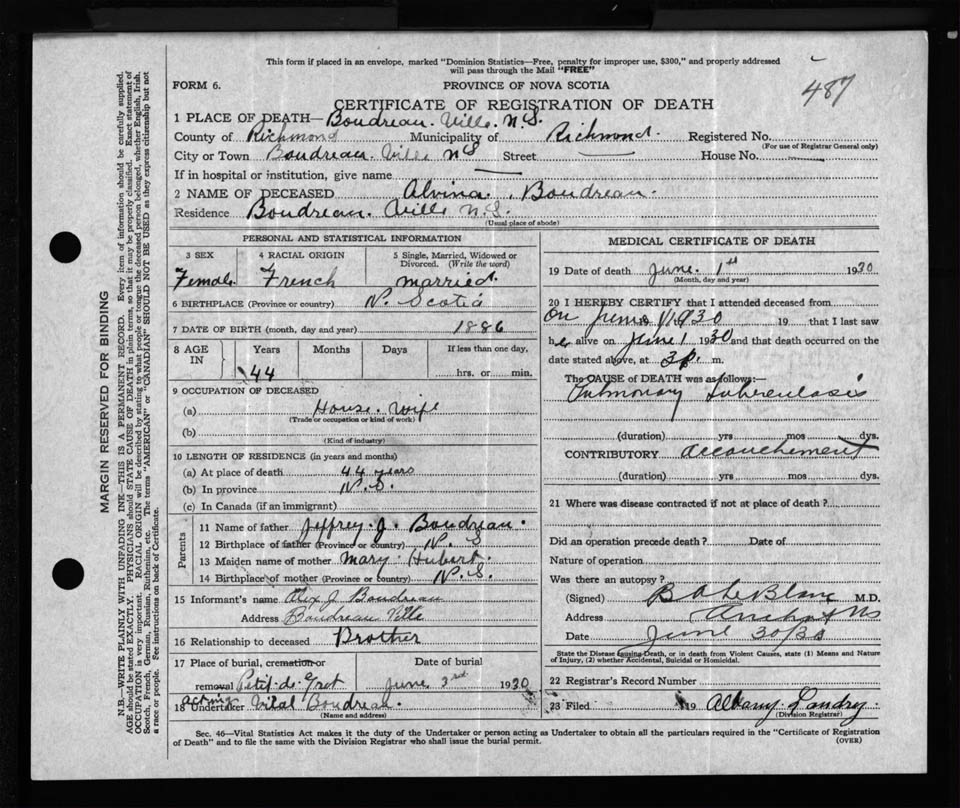 This form if placed in an envelope, marked "Dominion Statistics—Free, penalty for improper use, $300," and properly addressed
will pass through the Mail "FREE"
487
FORM 6.
PROVINCE OF NOVA SCOTIA
CERTIFICATE OF REGISTRATION OF DEATH
1 PLACE OF DEATH— Boudreau. Ville. N.S.
County of Richmond Municipality of Richmond. Registered No.
(For use of Registrar General only)
City or Town Boudreau. Ville N S Street House No.
If in hospital or institution, give name
2 NAME OF DECEASED Alvina. Boudreau.
Residence Boudreau. Ville N.S.
(Usual place of abode)
PERSONAL AND STATISTICAL INFORMATION
3 SEX 4 RACIAL ORIGIN 5 Single, Married, Widowed or
Divorced. (Write the word)
Female. French married.
6 BIRTHPLACE (Province or country) N. Scotia
7 DATE OF BIRTH (month, day and year) 1886
8 AGE IN Years Months Days If less than one day,
44 hrs. or min.
9 OCCUPATION OF DECEASED
(a) House. Wife
(Trade or occupation or kind of work)
(b)
(Kind of industry)
10 LENGTH OF RESIDENCE (in years and months)
(a) At place of death 44 years
(b) In province N.S.
(c) In Canada (if an immigrant)
Parents
11 Name of father Jeffrey. J. Boudreau.
12 Birthplace of father (Province or country) N. S
13 Maiden name of mother Mary. Hubert.
14 Birthplace of mother (Province or country) N.S.
15 Informant's name Alex J Boudreau
Address Boudreau Ville
16 Relationship to deceased Brother
17 Place of burial, cremation or Date of burial
removal Petit-de-Grat June 3rd. 1930
acting
18 Undertaker Vital Boudreau.
(Name and address)
MEDICAL CERTIFICATE OF DEATH
19 Date of death June. 1st 1930
(Month, day and year)
20 I HEREBY CERTIFY that I attended deceased from
On June 1/1930 19 that I last saw
her alive on June 1 1930 and that death occurred on the
date stated above, at 3 p. m.
The CAUSE OF DEATH was as follows:—
Pulmonary tuberculosis
(duration) yrs mos dys.
CONTRIBUTORY accouchement
(duration) yrs mos dys.
21 Where was disease contracted if not at place of death?
Did an operation precede death? Date of
Nature of operation
Was there an autopsy?
(Signed) B A LeBlanc M.D.
Address Arichat NS
Date June 30/30
State the Disease causing Death, or in death from Violent Causes, state (1) Means and Nature
of Injury, (2) whether Accidental, Suicidal or Homicidal.
22 Registrar's Record Number
23 Filed 19 Albany. Landry.
(Division Registrar)
Sec. 46—Vital Statistics Act makes it the duty of the Undertaker or person acting as Undertaker to obtain all the particulars required in the "Certificate of Registration
of Death" and to file the same with the Division Registrar who shall issue the burial permit.
(OVER)
MARGIN RESERVED FOR BINDING
N.B.—WRITE PLAINLY WITH UNFADING INK—THIS IS A PERMANENT RECORD. Every item of information should be carefully supplied.
AGE should be stated EXACTLY. PHYSICIANS should STATE CAUSE OF DEATH in plain terms, so that it may be properly classified. Exact statement of
OCCUPATION is very important. RACIAL ORIGIN will be described by stating to what people or tongue the deceased person belonged, whether English, Irish,
Scotch, French, German, Russian, Ruthenian, etc. The terms "AMERICAN" or "CANADIAN" SHOULD NOT BE USED as they express citizenship but not
a race or people. See instructions on back of Certificate.